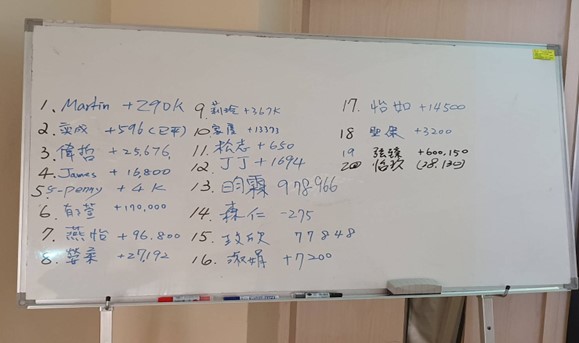 1. Martin +290K
2. 成 +596 (已平)
3. 偉哲 +25,676
4. James +16,800
5. penny +4K
6. 萱 +170,000
7. 燕怡 +96,800
8. 瑩柔 +27,192
9. +367K
10 +13373
11. 松志 +650
12. 丁丁 +1694
13. 昀霖 978966
14. 森仁 -275
15. 欣 77848
16. 淑娟 +7200
17. 怡如 +14500
18 堅果 +3200
19 +600,150
20 怡玟 (28,130)